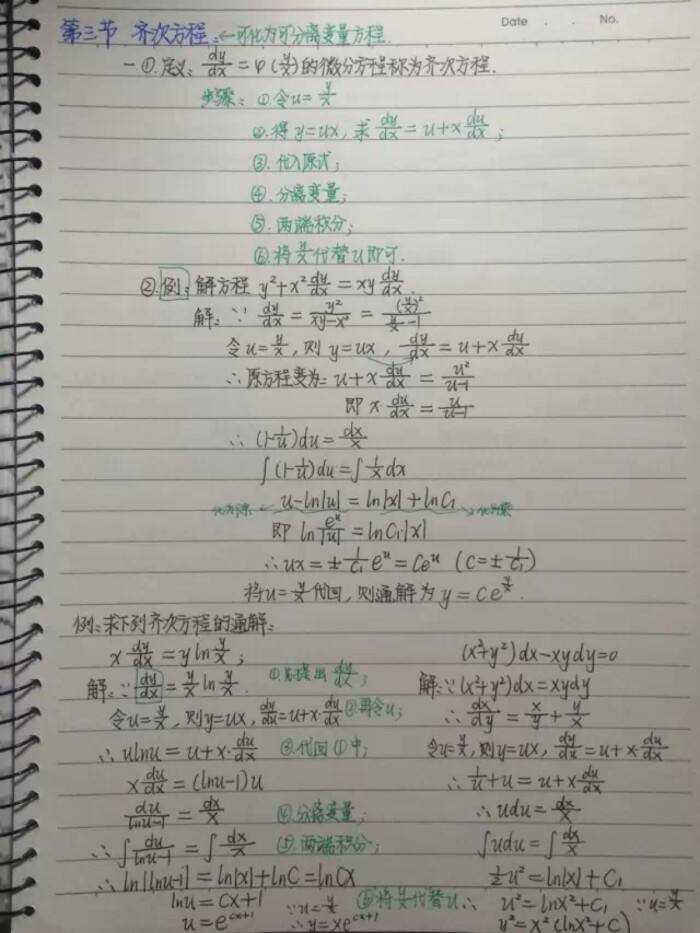 Date . . No.
第三节 齐次方程:←可化为可分离变量方程.
一①.定义: dy/dx = φ(y/x)的微分方程称为齐次方程.
步骤: ①令u=y/x
②.得 y=ux, 求 dy/dx = u+x du/dx;
③.代入原式;
④.分离变量;
⑤.两端积分;
⑥.将y/x代替u即可.
②.例: 解方程 y²+x² dy/dx = xy dy/dx.
解: ∵ dy/dx = y²/(xy-x²) = (y/x)²/(y/x -1)
令u=y/x, 则 y=ux, dy/dx = u+x·du/dx
∴原方程变为: u+x·du/dx = u²/(u-1)
即 x·du/dx = u/(u-1)
∴ (1-1/u)du = dx/x
∫(1-1/u)du = ∫1/x dx
u-ln|u| = ln|x|+lnC₁
即 ln e^u/|u| = lnC₁·|x|
∴ux = ±1/C₁ e^u = Ce^u (C=±1/C₁)
将u=y/x代回, 则通解为 y=Ce^(y/x).
例:求下列齐次方程的通解:
x dy/dx = y ln y/x;
解:∵ dy/dx = y/x ln y/x. ①先提出 dy/dx;
令u=y/x, 则y=ux, dy/dx=u+x·du/dx ②再令u;
∴ulnu = u+x·du/dx ③代回①中;
x du/dx = (lnu-1)u
du/(lnu-1) = dx/x ④分离变量;
∴∫du/(lnu-1) = ∫dx/x ⑤.两端积分;
∴ln|lnu-1| = ln|x|+lnC = lnCx
lnu = Cx+1 ∵u=y/x ⑥将y/x代替u.
u = e^(cx+1) ∴y=xe^(cx+1)
(x²+y²)dx-xydy=0
解:∵(x²+y²)dx=xydy
∴ dx/dy = x/y + y/x
令u=y/x, 则y=ux, dy/dx=u+x·du/dx
∴ 1/u+u = u+x·du/dx
∴udu = dx/x
∫udu = ∫dx/x
½u² = ln|x|+C₁
∴ u² = lnx²+C₁ ∵u=y/x
y² = x²(lnx²+C)